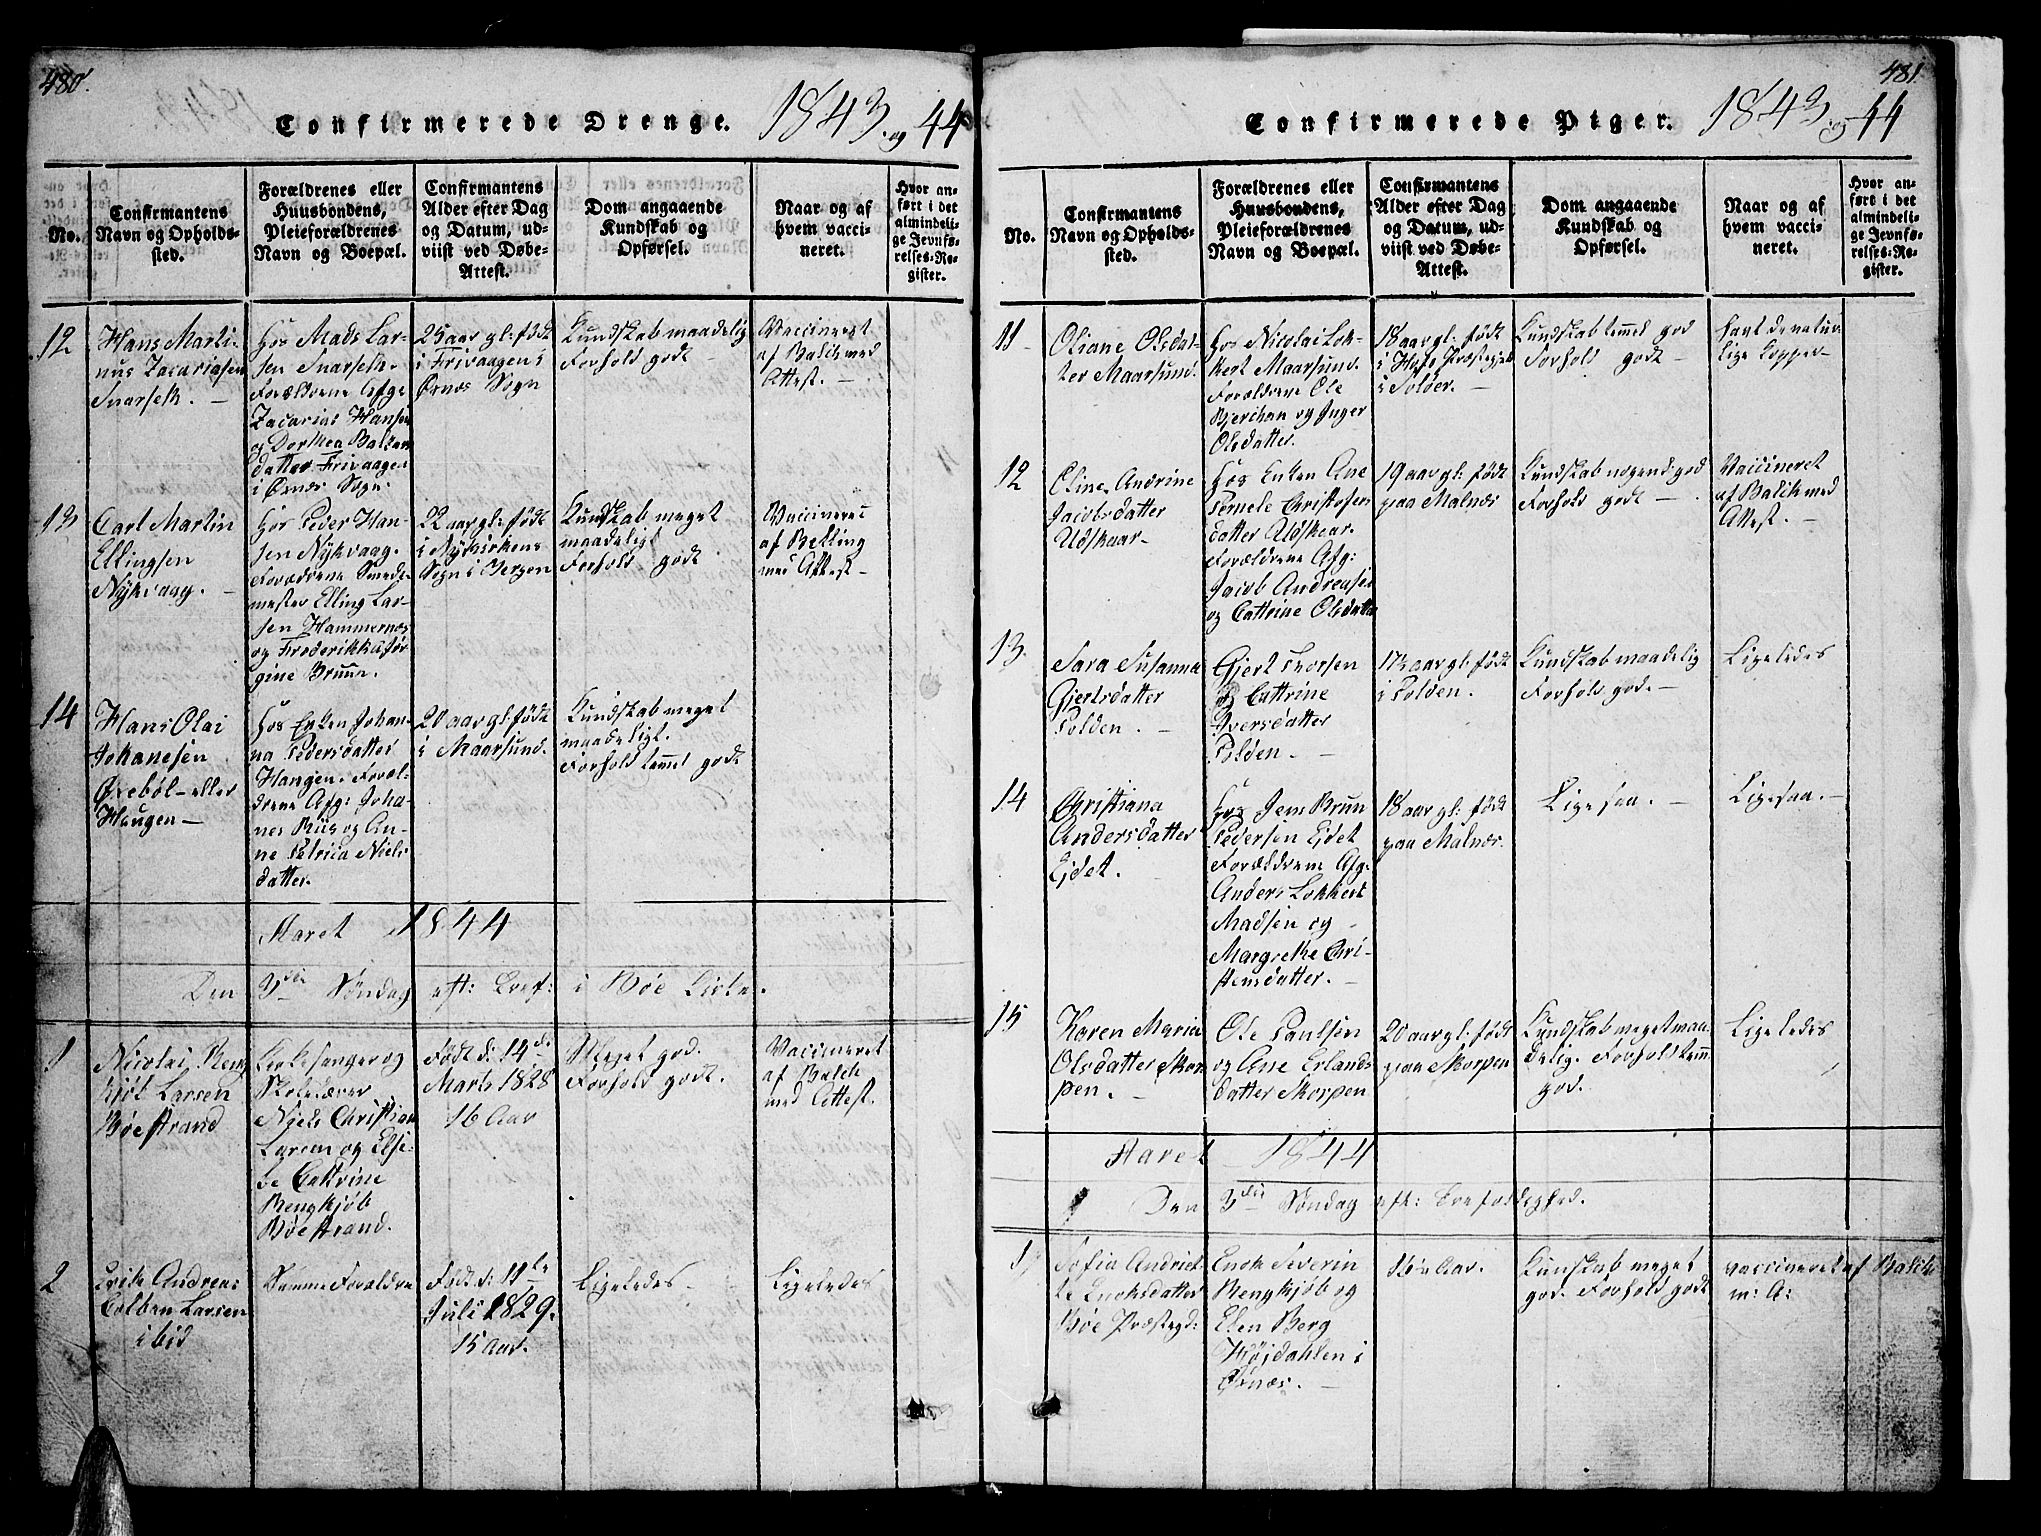 480.
Confirmerede Drenge. 1843 og 44
No.
Confirmantens
Navn og Opholds-
sted.
Forældrenes eller
Huusbondens,
Pleieforældrenes
Navn og Boepæl.
Confirmantens
Alder efter Dag
og Datum, ud-
viist ved Døbe-
Attest.
Dom angaaende
Kundskab og
Opførsel.
Naar og af
hvem vacci-
neret.
Hvor an-
ført i det
almindeli-
ge Jevnfø-
relses-Re-
gister.
12
Hans Marti-
nus Zacariasen
Snarseth.
Hos Mads Lar-
sen Snarseth.
Forældrene Afg:
Zacarias Hansen
og Dorthea Baltzers
datter Frivaagen
i Øsnæs Sogn.
25 aar gl: født
i Frivaagen i
Øsnæs Sogn
Kundskab maadelig
Forhold godt
Vaccineret
af Balch med
Attest. —
13
Carl Martin
Ellingsen
Nykvaag. —
Hos Peder Han-
sen Nykvaag.
Forældrene Smede-
mester Elling Lar-
sen Hammernæs
og Frederikka Jør-
gine Bruun.
22 aar gl: født
i Nykirkens
Sogn i Bergen
Kundskab meget
maadeligt
Forhold godt
Vaccineret
af Belling
med Attest —
14
Hans Olai
Johanesen
Ørebøl — eller
Haugen —
Hos Enken Johan-
na Pedersdatter
Haugen. Foræl-
drene Afg: Joha-
nes Riis og An-
ne Petrica Niels
datter.
20 aar gl: født
i Maarsund.
Kundskab meget
maadeligt.
Forhold temmel godt
Aaret 1844
Den 3die Søndag eft: Tref: i Bøe Kirke.
1
Nicolai Beng
kjøb Larsen
Bøestrand
Kirkesanger og
Skolelærer
Niels Christian
Larsen og Else-
be Cathrine
Bengkjøb
Bøestrand.
Født d: 14de
Marts 1828
16 Aar
Meget god.
Forhold godt.
Vaccineret
af Balch
med Attest.
2
Erik Andreas
Colban Larsen
ibid
Samme Forældre
Født d: 11te
Juli 1829.
15 Aar.
Ligeledes
Ligeledes
481.
Confirmerede Piger. 1843 og 44
No.
Confirmantens
Navn og Opholds-
sted.
Forældrenes eller
Huusbondens,
Pleieforældrenes
Navn og Boepæl.
Confirmantens
Alder efter Dag
og Datum, ud-
viist ved Døbe-
Attest.
Dom angaaende
Kundskab og
Opførsel.
Naar og af
hvem vacci-
neret.
Hvor an-
ført i det
almindeli-
ge Jevnfø-
relses-Re-
gister.
11
Oliane Olsdat-
ter Maarsund.
Hos Nicolai Lok-
kert Maarsund.
Forældrene Ole
og Inger
Olsdatter.
18 aar gl: født
i Hofs Præstegjeld
i Soløer. —
Kundskab temmel god
Forhold godt —
havt de natur
lige Kopper —
12
Eline Andrine
Jacobsdatter
Udskaar —
Hos Enken Ane
Pernele Christofers
datter Udskaar.
Forældrene Afg:
Jacob Andreasen
og Cathrine Olsdatter
19 aar gl: født
paa Malnæs
Kundskab nogend: god
Forhold godt —
Vaccineret
af Balch med
Attest. —
13.
Sara Susanna
Gjertsdatter
Polden. —
Gjert Thorsen
og Cathrine
Iversdatter
Polden. —
17½ aar gl: født
i Polden.
Kundskab maadelig
Forhold god. —
Ligeledes
14
Christiana
Andersdatter
Eidet.
Hos Jens Brun
Pedersen Eidet
Forældrene Afg:
Anders Lokkert
Madsen og
Margrethe Chri-
stensdatter. —
18 aar gl: født
paa Malnæs.
Ligesaa. —
Ligesaa. —
15
Karen Maria
Olsdatter Skor
pen. —
Ole Paulsen
og Ane Erlands
datter Skorpen
20 aar gl: født
paa Skorpen
Kundskab meget maa
delig. Forhold temm
god.
Ligeledes
Aaret 1844
Den 3die Søndag eft: Trefoldighed.
1,
Sofia Andriet
te Enoksdatter
Bøe Præstegd:
Enok Severin
Bengkjøb og
Elen Berg
Højdahlen i
Øsnæs. —
16½ Aar.
Kundskab meget
god. Forhold godt
vaccineret af Balch
m: A: